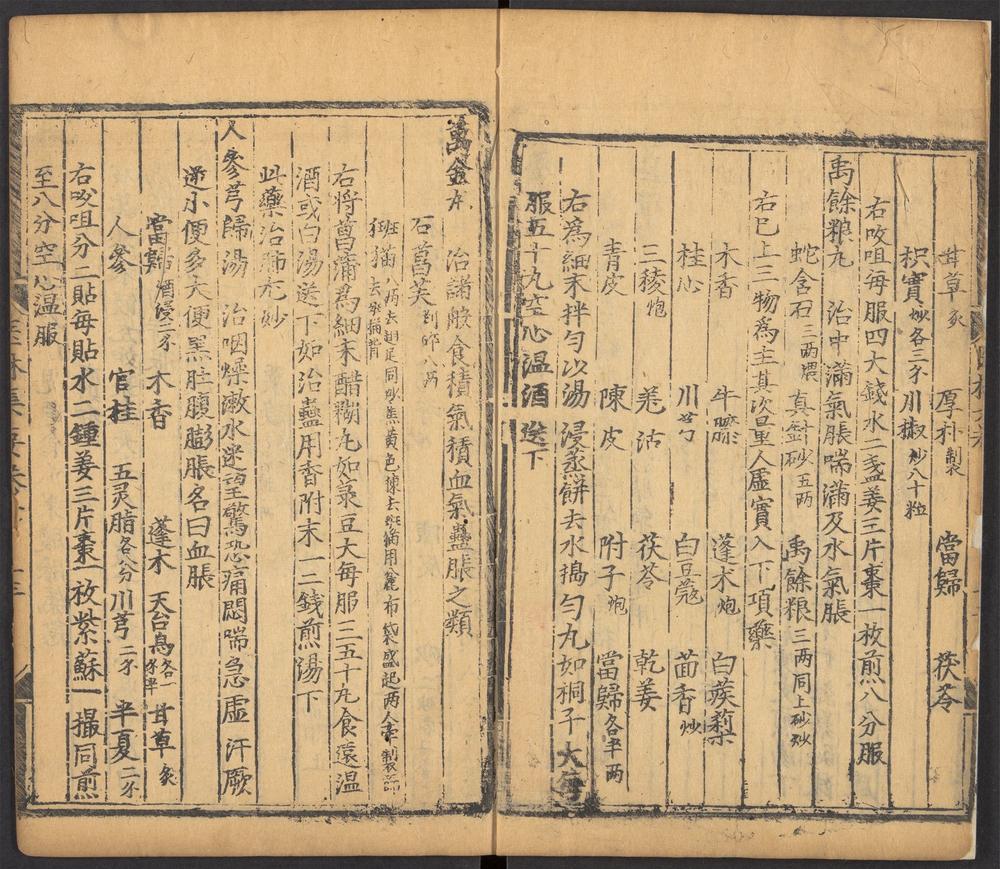 甘草炙 厚朴製 當歸 茯苓
枳實炒各三不 川椒炒八十粒
右㕮咀每服四大錢水二盞姜三片棗一枚煎八分服
禹餘粮丸 治中滿氣脹喘滿及水氣脹
蛇含石三两煨 真針砂五两 禹餘粮三两同上砂炒
右已上三物為主其次量人虛實入下項藥
木香 牛膝 蓬朮炮 白蒺䔧
桂心 川芎 白豆蔻 茴香炒
三稜炮 羗活 茯苓 乾姜
青皮 陳皮 附子炮 當歸各半两
右為細末拌勻以湯浸蒸餅去水搗勻丸如桐子大每
服五十丸空心温酒送下
萬金本 治諸般食積氣積血氣蠱脹之類
石菖芙 八两
班猫八两去翅足同炒焦黄色揀去班猫用麄布袋盛起两人牽製
去尽猫
右将菖蒲為細末醋糊丸如菉豆大每服三五十丸食遠温
酒或白湯送下如治蠱用香附末一二錢煎湯下
此藥治肺尤妙
人參芎歸湯 治咽燥漱水迷望驚恐痛悶喘急虛汗厥
逆小便多大便黑肚腹膨脹名曰血脹
當歸酒浸二不 木香 蓬木 天台烏各一不半 甘草炙
人參 官桂 五灵脂各八分 川芎二不 半夏二不
右㕮咀分二貼每貼水二鍾姜三片棗一枚紫蘇一撮同煎
至八分空心温服